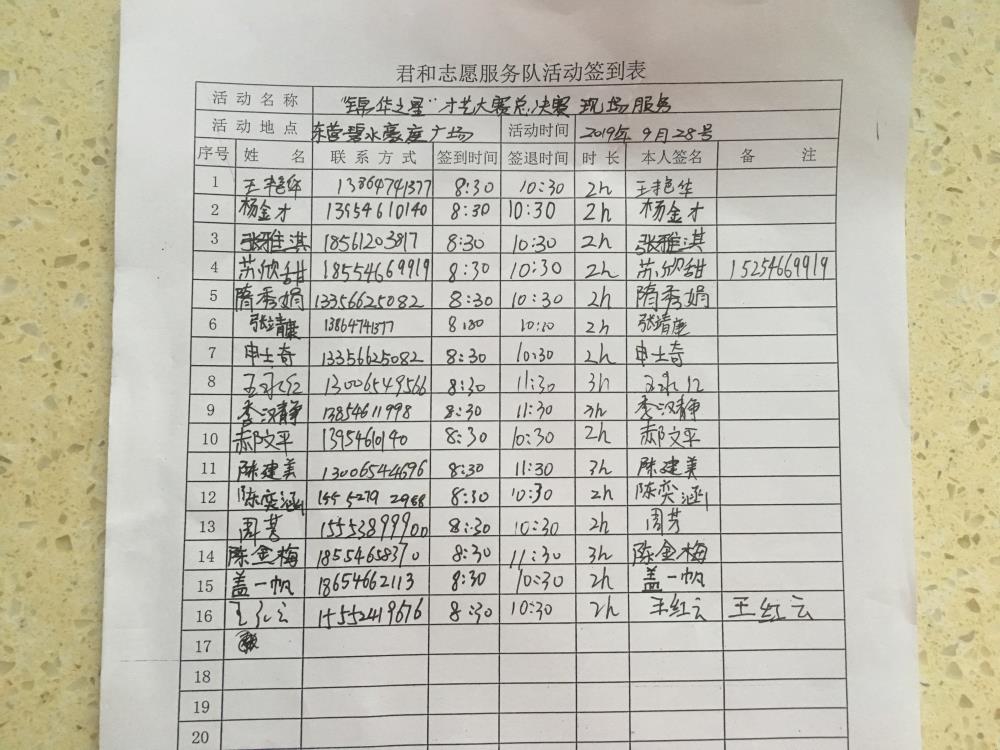 君和志愿服务队活动签到表
活动名称 "锦华之星"才艺大赛总决赛 现场服务
活动地点 东营碧水豪座广场 活动时间 2019年9月28号
序号 姓名 联系方式 签到时间 签退时间 时长 本人签名 备注
1 王艳华 13864741377 8:30 10:30 2h 王艳华
2 杨金才 13954610140 8:30 10:30 2h 杨金才
3 张雅淇 18561203817 8:30 10:30 2h 张雅淇
4 苏欣甜 18554669919 8:30 10:30 2h 苏欣甜 15254669919
5 隋秀娟 13356625082 8:30 10:30 2h 隋秀娟
6 张靖康 13864741377 8:30 10:30 2h 张靖康
7 申士奇 13356625082 8:30 10:30 2h 申士奇
8 王永红 13006549566 8:30 11:30 3h 王永红
9 李汉静 13854611998 8:30 11:30 3h 李汉静
10 郝文平 13954610140 8:30 10:30 2h 郝文平
11 陈建美 13006544696 8:30 11:30 3h 陈建美
12 陈奕涵 155 5279 2988 8:30 10:30 2h 陈奕涵
13 周芳 15553899900 8:30 10:30 2h 周芳
14 陈金梅 18554658370 8:30 11:30 3h 陈金梅
15 盖一帆 18654662113 8:30 10:30 2h 盖一帆
16 王红云 15552419676 8:30 10:30 2h 王红云 王红云
17
18
19
20